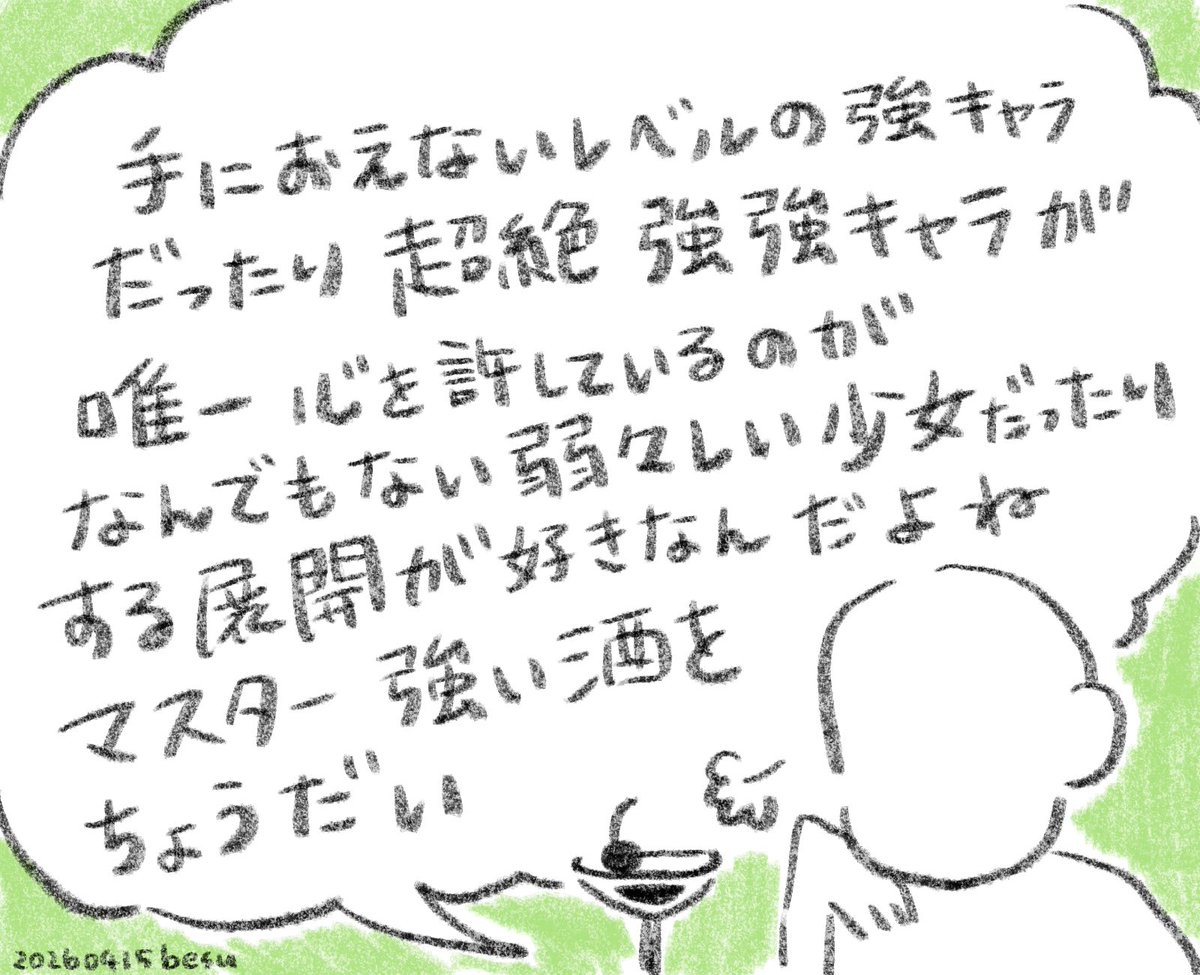 手におえないレベルの強キャラ
だったり超絶 強強キャラが
唯一心を許しているのが
なんでもない弱々しい少女だったり
する展開が好きなんだよね
マスター 強い酒を
ちょうだい
20260415 besu